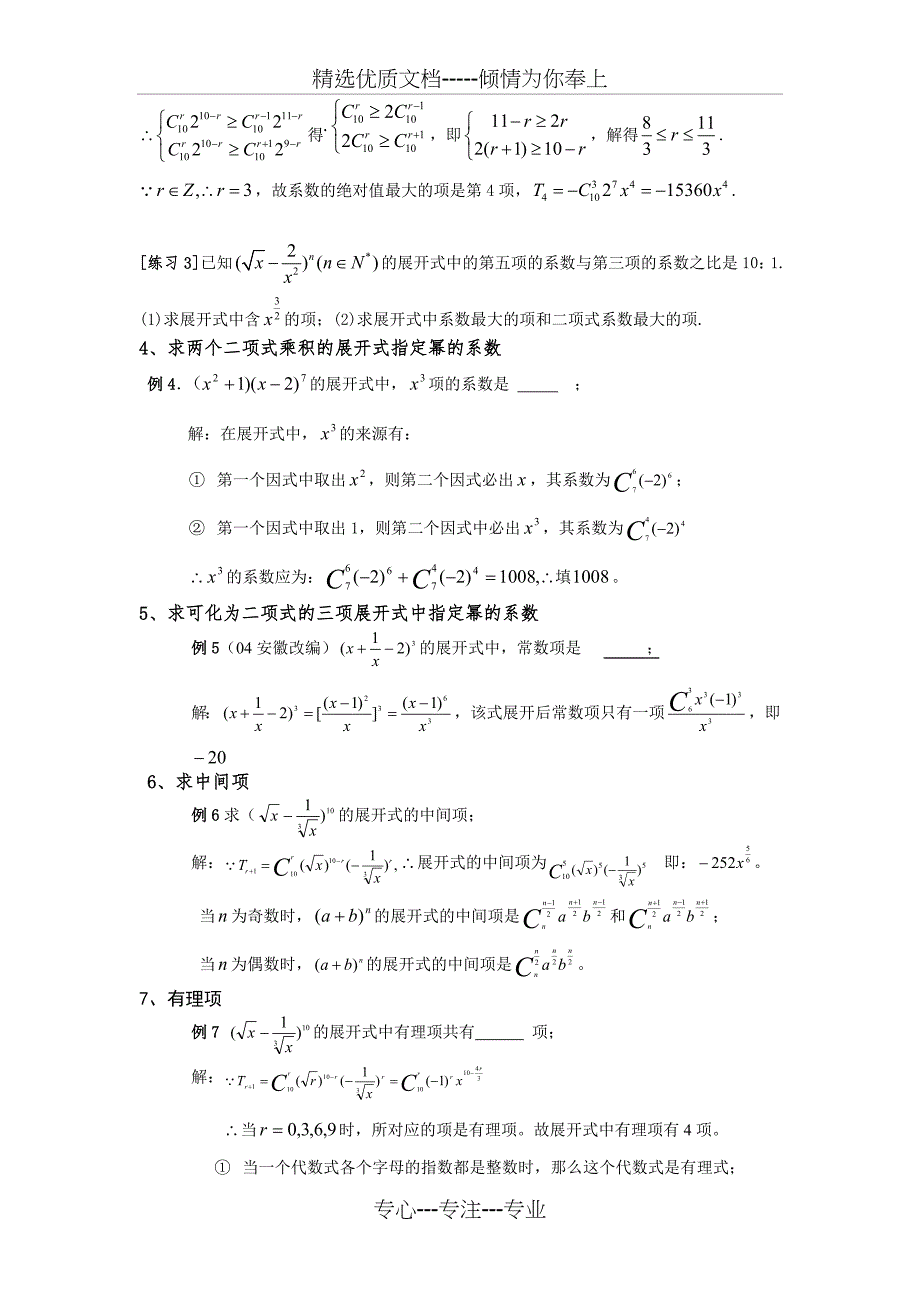 精选优质文档-----倾情为你奉上
∴{C_{10}^{r}2^{10-r}≥C_{10}^{r-1}2^{11-r}, C_{10}^{r}2^{10-r}≥C_{10}^{r+1}2^{9-r} 得·{C_{10}^{r}≥2C_{10}^{r-1}, 2C_{10}^{r}≥C_{10}^{r+1}，即{11-r≥2r, 2(r+1)≥10-r，解得8/3≤r≤11/3.
∵r∈Z,∴r=3，故系数的绝对值最大的项是第4项，T_4=-C_{10}^{3}2^7x^4=-15360x^4.
[练习3]已知(√x-2/x^2)^n(n∈N^*)的展开式中的第五项的系数与第三项的系数之比是10:1.
(1)求展开式中含x^{3/2}的项;(2)求展开式中系数最大的项和二项式系数最大的项.
4、求两个二项式乘积的展开式指定幂的系数
例4.（x^2+1)(x-2)^7的展开式中，x^3项的系数是 _____ ；
解：在展开式中，x^3的来源有：
① 第一个因式中取出x^2，则第二个因式必出x，其系数为C_7^6(-2)^6；
② 第一个因式中取出1，则第二个因式中必出x^3，其系数为C_7^4(-2)^4
∴x^3的系数应为：C_7^6(-2)^6+C_7^4(-2)^4=1008,∴填1008。
5、求可化为二项式的三项展开式中指定幂的系数
例5（04安徽改编）(x+1/x-2)^3的展开式中，常数项是 _____；
解：(x+1/x-2)^3=[(x-1)^2/x]^3=(x-1)^6/x^3，该式展开后常数项只有一项C_6^3x^3(-1)^3/x^3，即
-20
6、求中间项
例6求（√x-1/∛x)^{10}的展开式的中间项；
解：∵T_{r+1}=C_{10}^{r}(√x)^{10-r}(-1/∛x)^r,∴展开式的中间项为C_{10}^{5}(√x)^5(-1/∛x)^5 即：-252x^{5/6}。
当n为奇数时，(a+b)^n的展开式的中间项是C_n^{(n-1)/2}a^{(n+1)/2}b^{(n-1)/2}和C_n^{(n+1)/2}a^{(n-1)/2}b^{(n+1)/2}；
当n为偶数时，(a+b)^n的展开式的中间项是C_n^{n/2}a^{n/2}b^{n/2}。
7、有理项
例7 (√x-1/∛x)^{10}的展开式中有理项共有_____ 项；
解：∵T_{r+1}=C_{10}^{r}(√r)^{10-r}(-1/∛x)^r=C_{10}^{r}(-1)^r x^{10-4r/3}
∴当r=0,3,6,9时，所对应的项是有理项。故展开式中有理项有4项。
① 当一个代数式各个字母的指数都是整数时，那么这个代数式是有理式；
专心---专注---专业